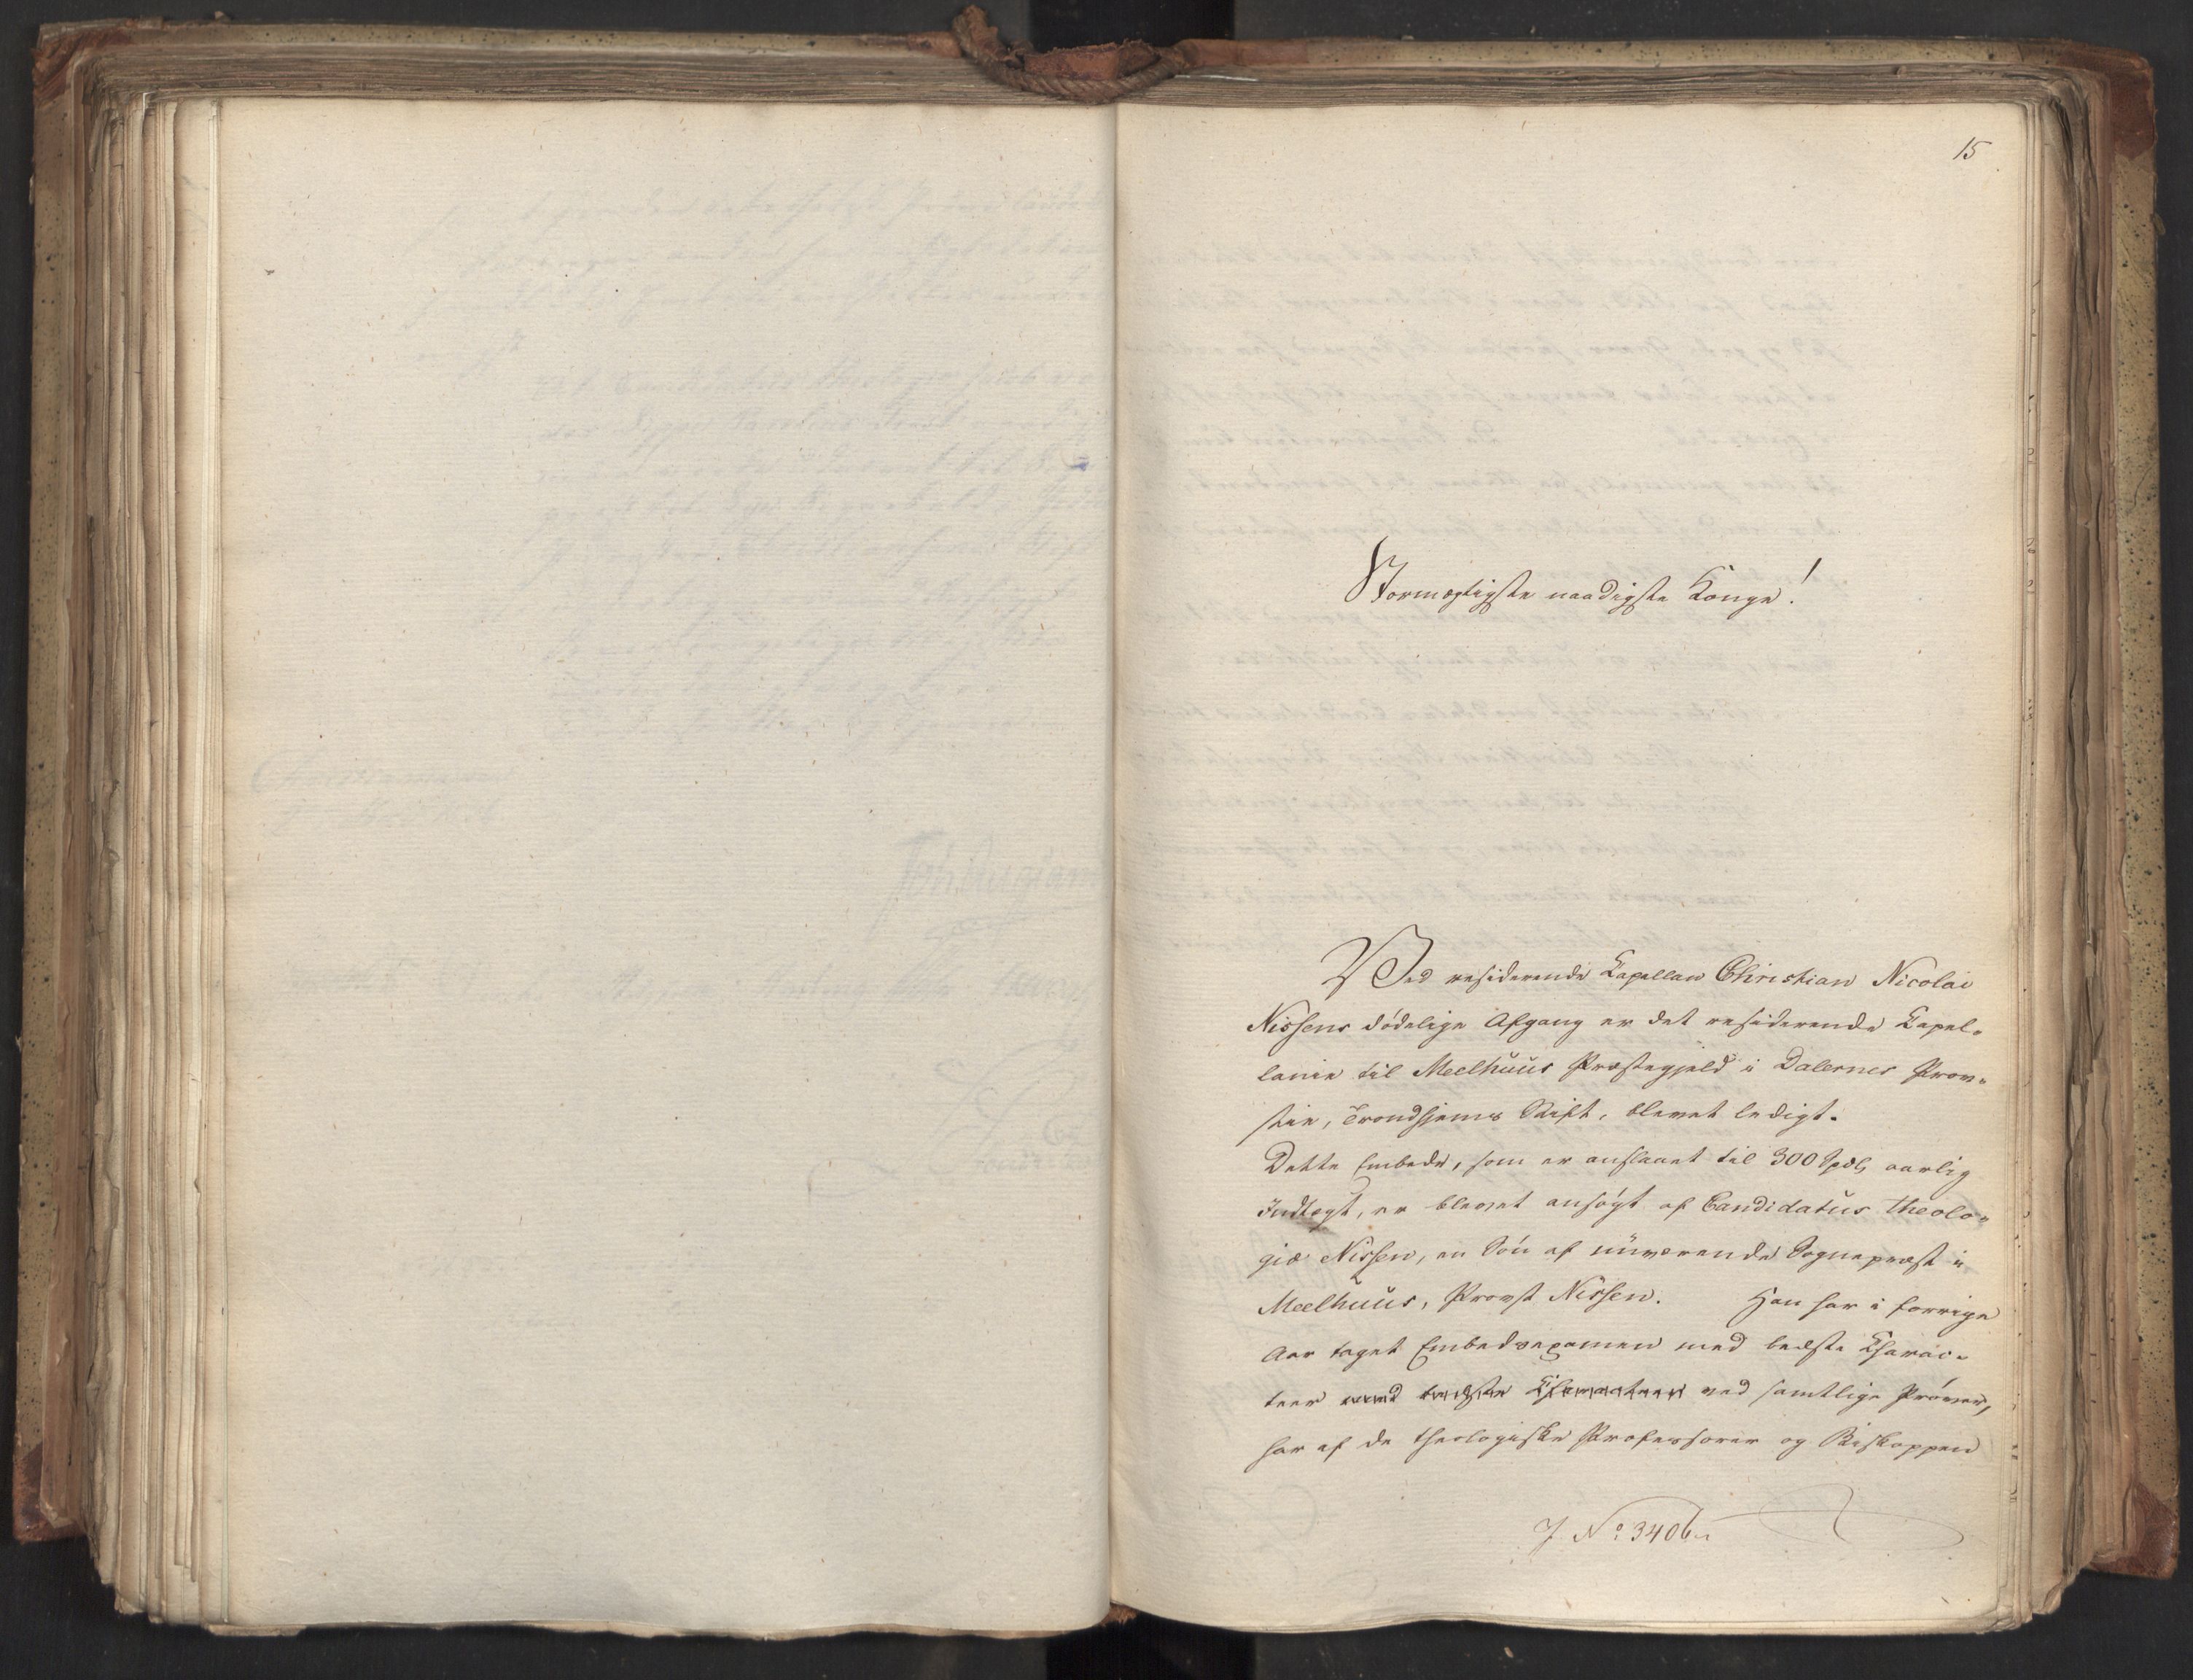 15
Stormægtigste naadigste Konge!
Ved residerende Kapellan Christian Nicolai
Nissens dødelige Afgang er det residerende Kapel-
lanie til Meelhuus Præstegjeld i Dalernes Prov-
stie, Trondhjems Stift, blevet ledigt.
Dette Embede, som er anslaaet til 300 Spdlr aarlig
Indtægt, er blevet ansøgt af Candidatus theolo-
giæ Nissen, en Søn af nuværende Sognepræst i
Meelhuus, Provst Nissen. Han har i forrige
Aar taget Embedsexamen med bedste Charac-
teer med bedste Characteer ved samtlige Prøver,
har af de theologiske Professorer og Biskoppen
J. No 3406